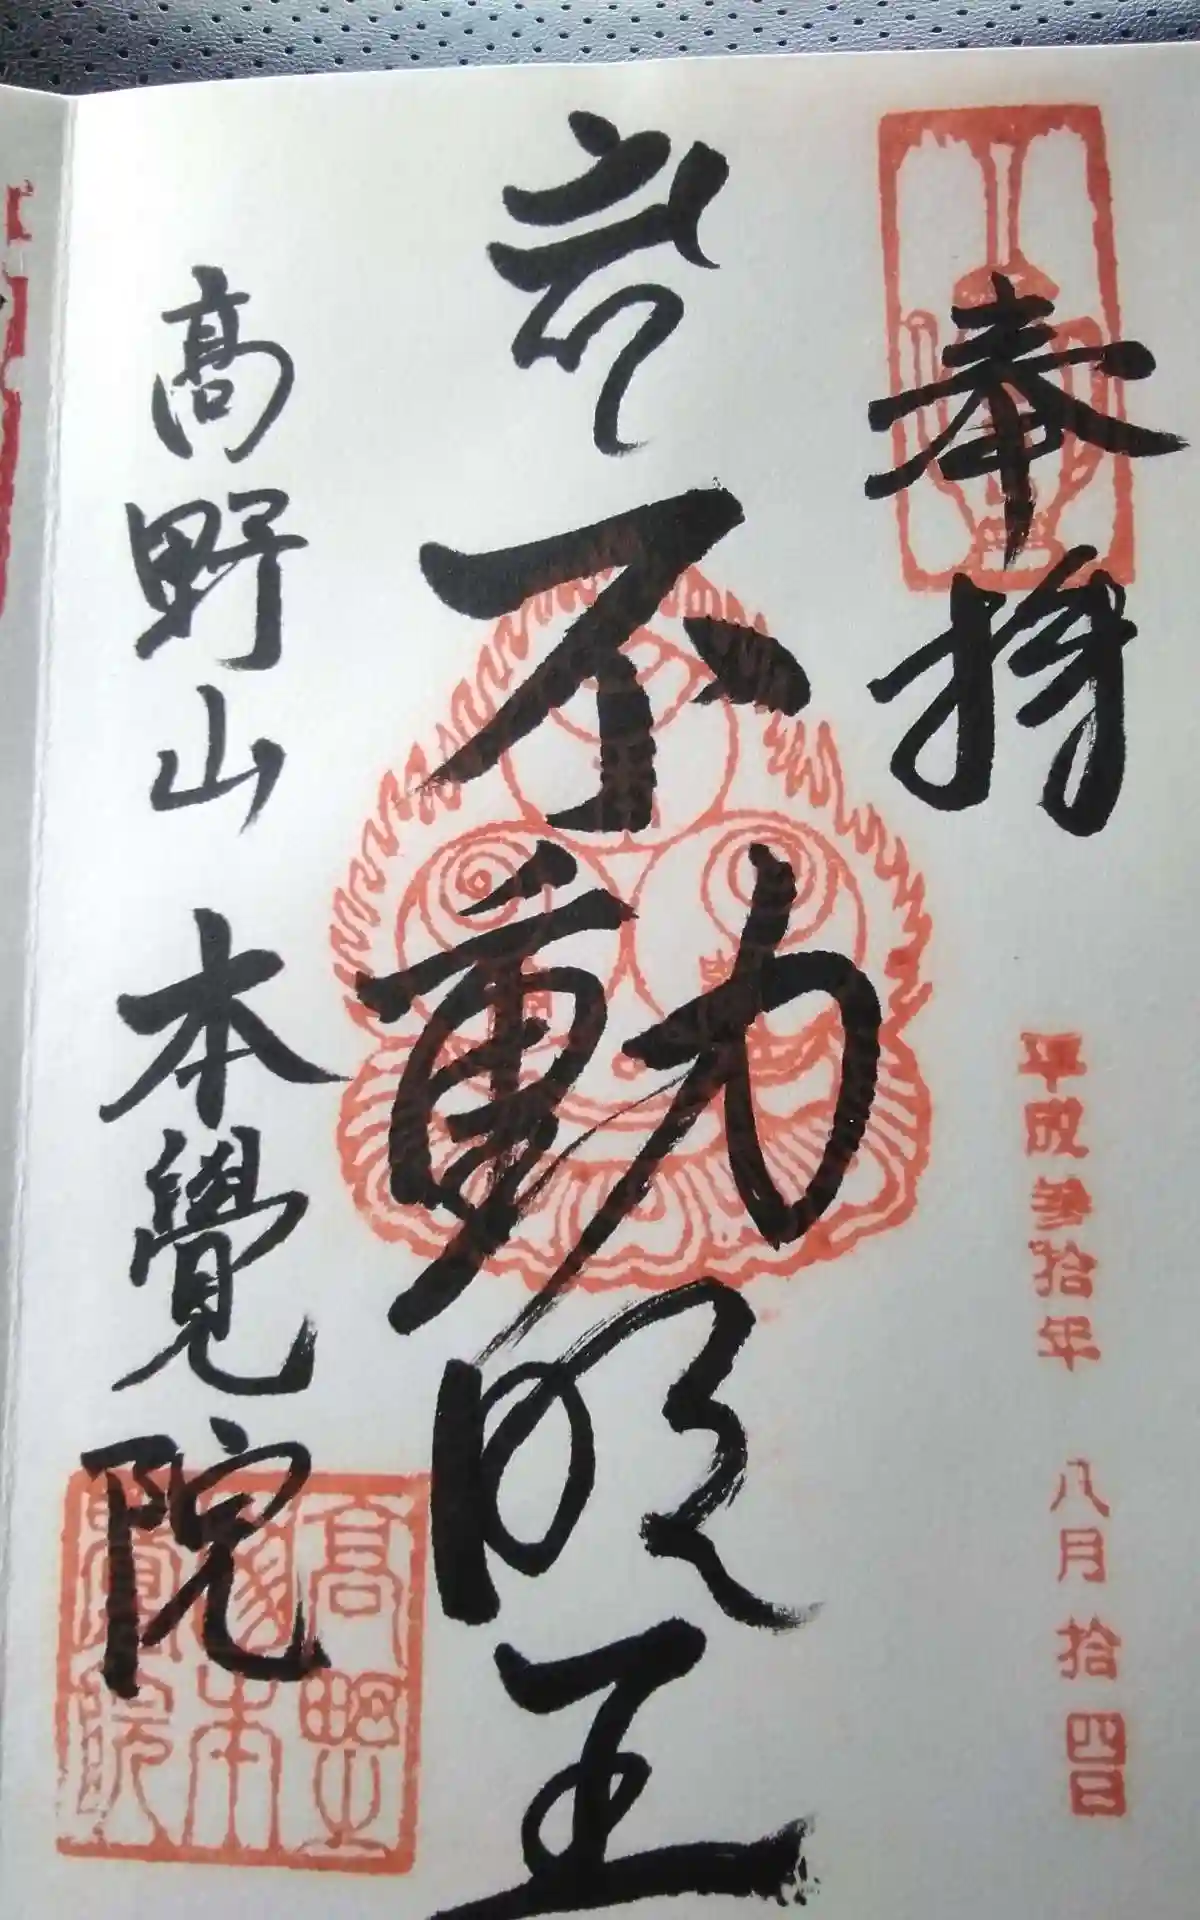 奉拝
平成参拾年 八月 拾四日
不動明王
高野山 本覺院
高野山本覺院